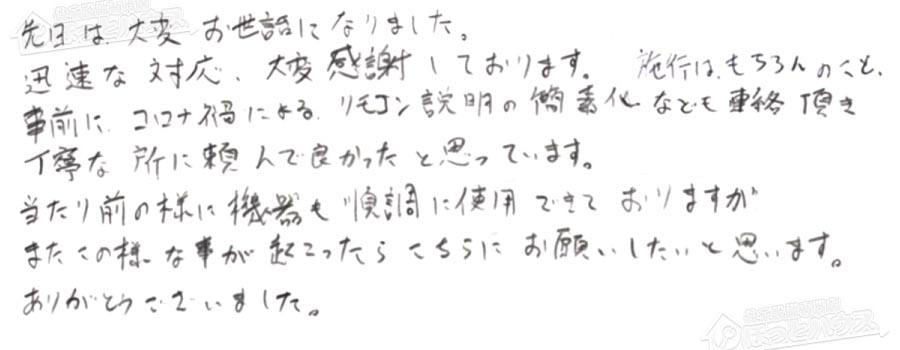 先日は、大変お世話になりました。
迅速な対応、大変感謝しております。 施行は、もちろんのこと、
事前に、コロナ禍による、リモコン説明の簡素化なども連絡頂き
丁寧な所に頼んで良かったと思っています。
当たり前の様に機器も順調に使用できておりますが
またこの様な事が起こったらこちらにお願いしたいと思います。
ありがとうございました。
ほっとハウス